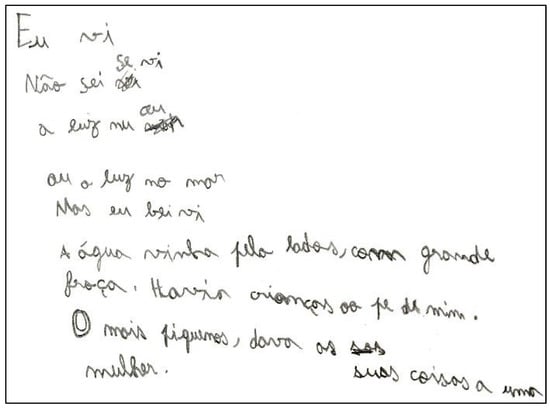 Eu vi
Não sei se vi
a luz nu ou
ou a luz no mar
Mas eu bei vi
A água vinha pela lados, com grande
froça. Havia crianças ao pe de mim.
O mais piquenos, dava as
suas coisas a uma
mulher.